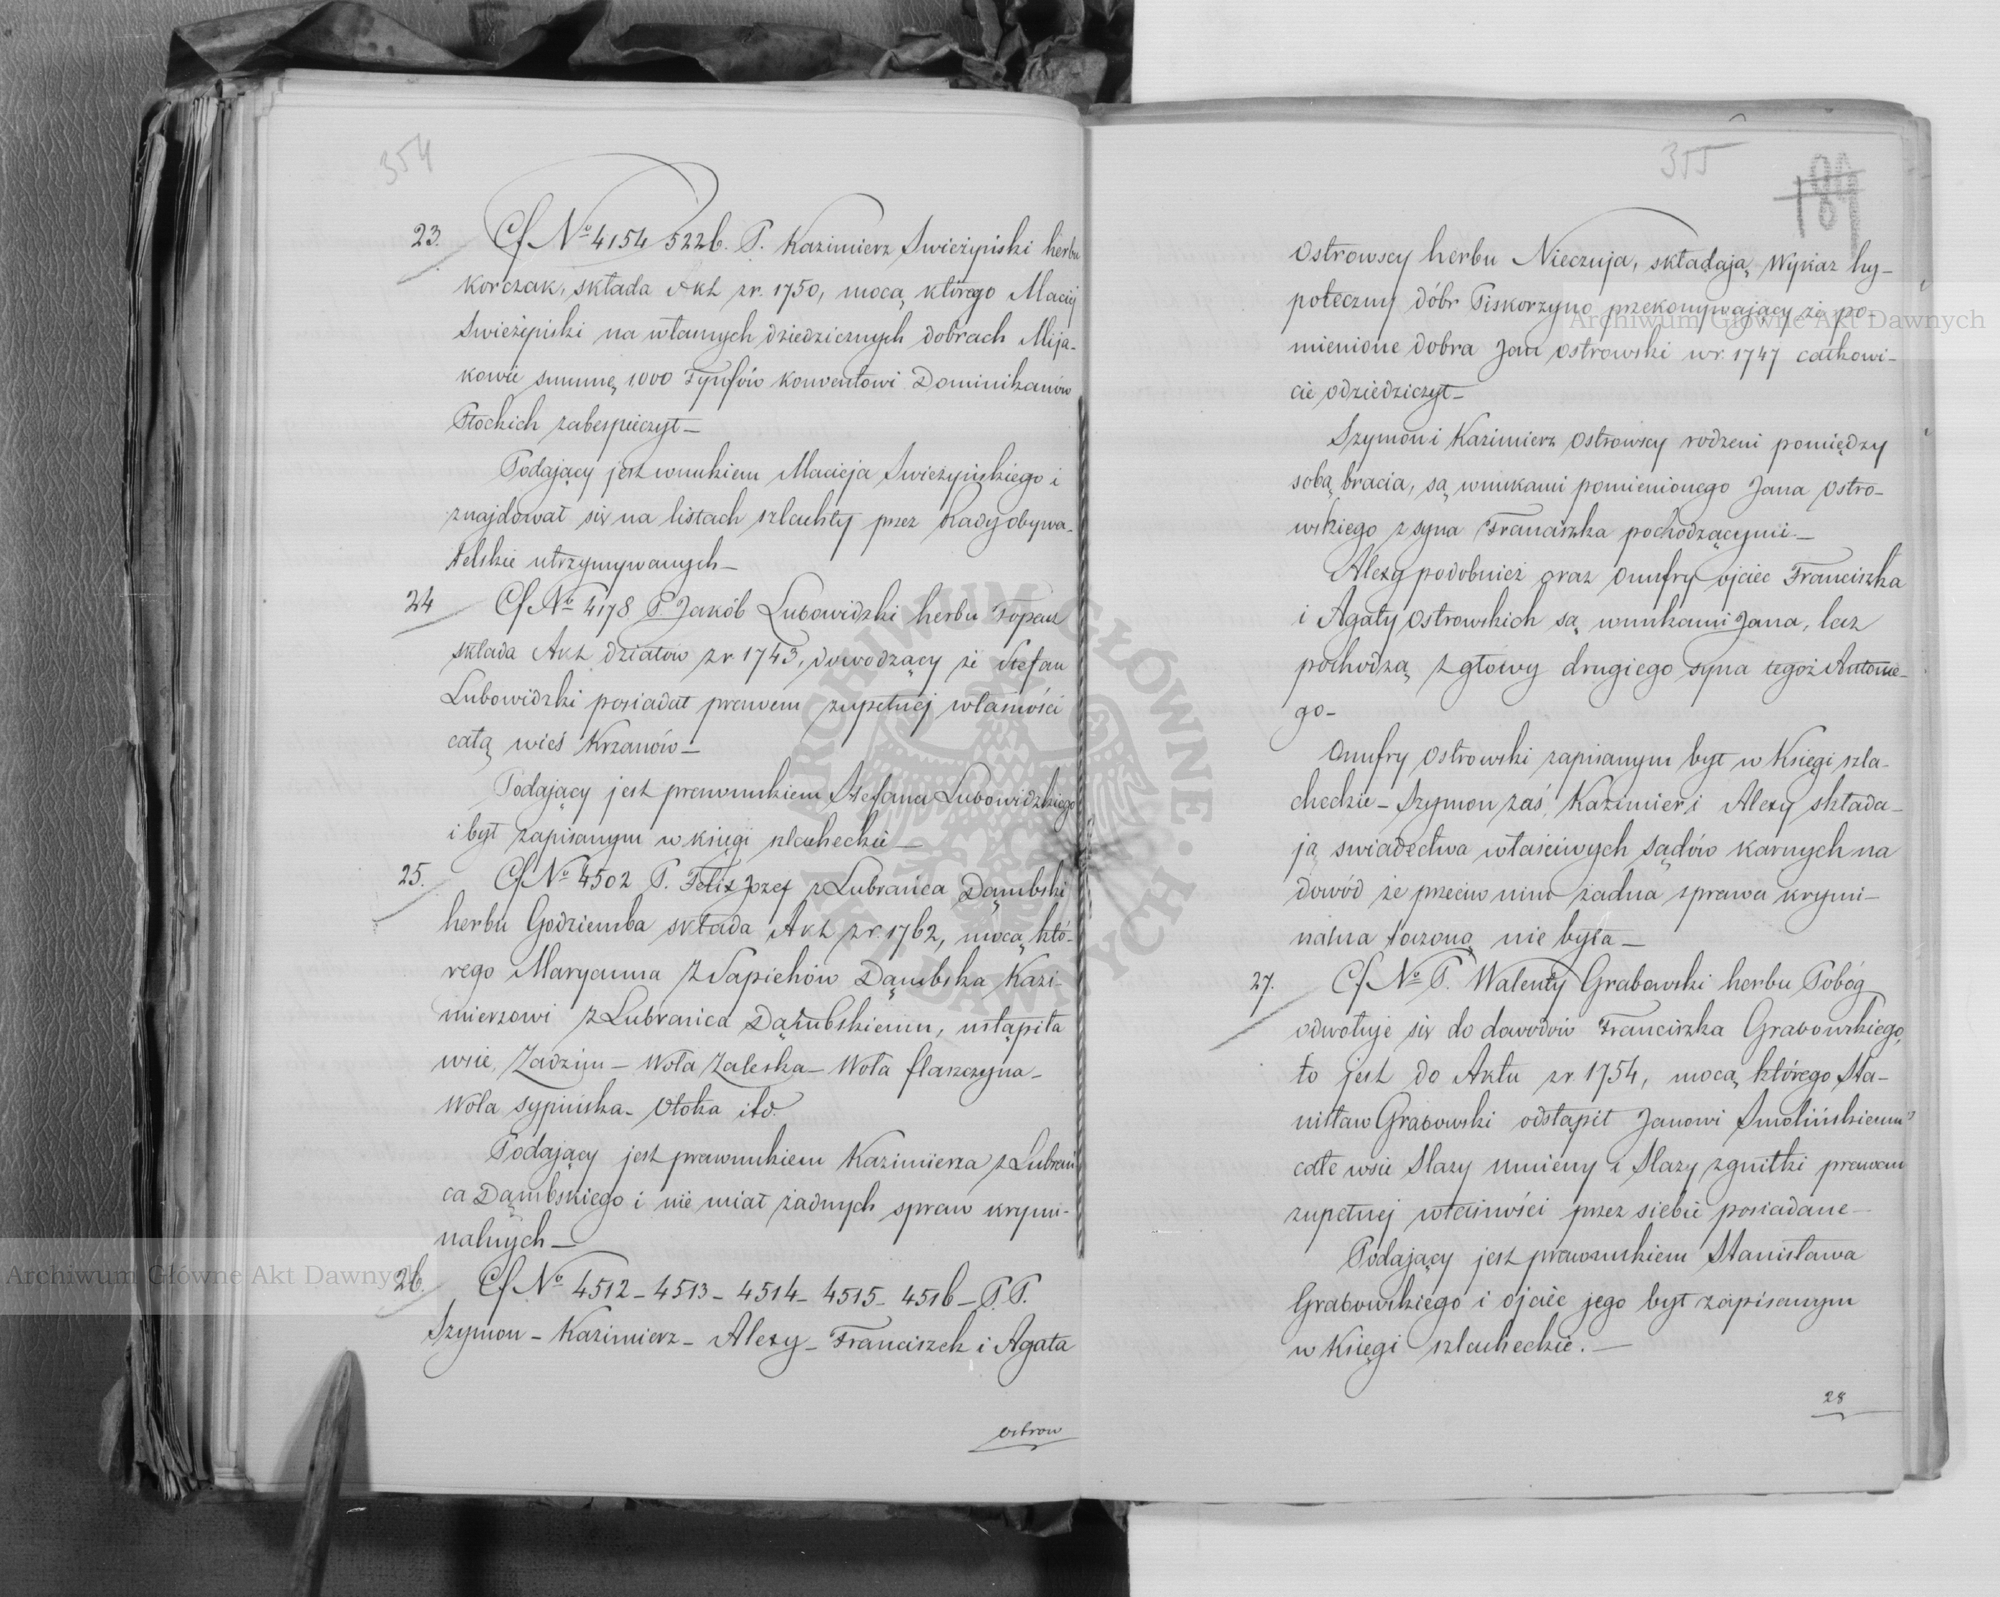 354
23. Cf No 4154 5226. P. Kazimierz Swieżyński herbu
Korczak, składa Akt z r. 1750, mocą którego Maciej
Swieżyński na własnych dziedzicznych dobrach Mija-
kowie summę 1000 Tynfów konwentowi Dominikanów
Płockich zabespieczył —
Podający jest wnukiem Macieja Swieżyńskiego i
znajdował się na listach szlachty przez Rady obywa-
telskie utrzymywanych —
24 Cf No 4178 P. Jakób Lubowidzki herbu Topacz
składa Akt działów z r. 1743, dowodzący że Stefan
Lubowidzki posiadał prawem zupełnej własności
całą wieś Krzanów —
Podający jest prawnukiem Stefana Lubowidzkiego
i był zapisanym w księgi szlacheckie —
25. Cf No 4502 P. Felix Jozef z Lubrańca Dąmbski
herbu Godziemba składa Akt z r. 1762, mocą któ-
rego Maryanna z Sapiehów Dąmbska Kazi-
mierzowi z Lubrańca Dąmbskiemu, ustąpiła
wsie, Zadzim — Wola Zaleska — Wola flaszczyna —
Wola sypińska — Otoka itd.
Podający jest prawnukiem Kazimierza z Lubrań
ca Dąmbskiego i nie miał żadnych spraw krymi-
nalnych —
26. Cf No 4512 — 4513 — 4514 — 4515 — 4516 — P. P.
Szymon — Kazimierz — Alexy — Franciszek i Agata
ostrow
355
189
Ostrowscy herbu Nieczuja, składają Wykaz hy-
poteczny dóbr Piskorzyno przekonywający że po-
mienione dobra Jan Ostrowski w r. 1747 całkowi-
cie odziedziczył —
Szymon i Kazimierz Ostrowscy rodzeni pomiędzy
sobą bracia, są wnukami pomienionego Jana Ostro-
wskiego z syna Franciszka pochodzącymi —
Alexy podobnież oraz Onufry ojciec Franciszka
i Agaty Ostrowskich są wnukami Jana, lecz
pochodzą z głowy drugiego syna tegoż Antonie-
go —
Onufry Ostrowski zapisanym był w Księgi szla-
checkie — Szymon zaś, Kazimier i Alexy składa-
ją swiadectwa właściwych sądów karnych na
dowód że przeciw nim żadna sprawa krymi-
nalna toczoną nie była —
27. Cf No P. Walenty Grabowski herbu Pobóg
odwołuje się do dowodów Franciszka Grabowskiego,
to jest do Aktu z r. 1754, mocą którego Sta-
nisław Grabowski odstąpił Janowi Smolińskiemu
całe wsie Slazy umieny i Slazy zgniłki prawem
zupełnej własności przez siebie posiadane —
Podający jest prawnukiem Stanisława
Grabowskiego i ojciec jego był zapisanym
w Księgi szlacheckie. —
28
Archiwum Główne Akt Dawnych
Archiwum Główne Akt Dawnych
ARCHIWUM GŁÓWNE AKT DAWNYCH